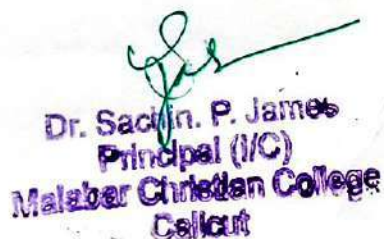 Dr. Sachin. P. James
Principal (I/C)
Malabar Christian College
Calicut